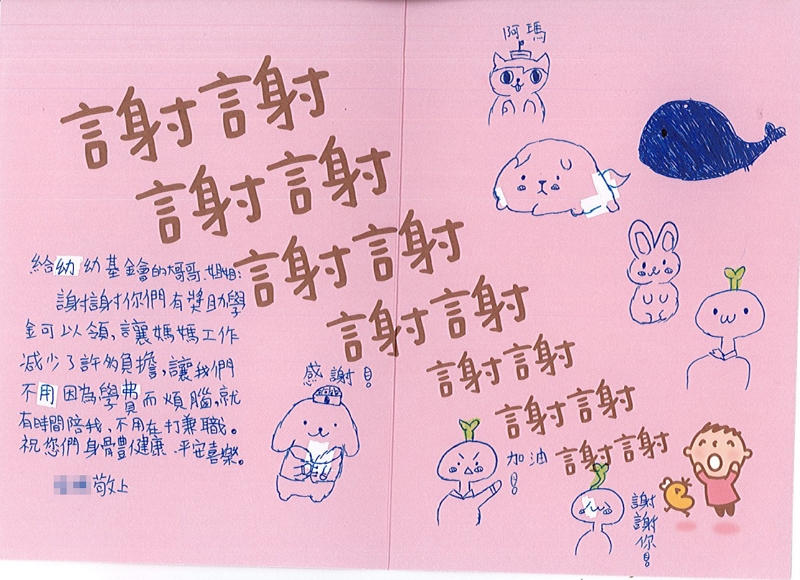 謝謝
謝謝
謝謝
謝謝
謝謝
謝謝
謝謝
給幼幼基金會的哥哥姐姐:
謝謝你們有獎助學
金可以領,讓媽媽工作
減少了許多負擔,讓我們
不用因為學費而煩腦,就
有時間陪我,不用在打兼職。
祝您們身體健康 平安喜樂。
敬上
感謝!
阿瑪
加油!
謝謝你!